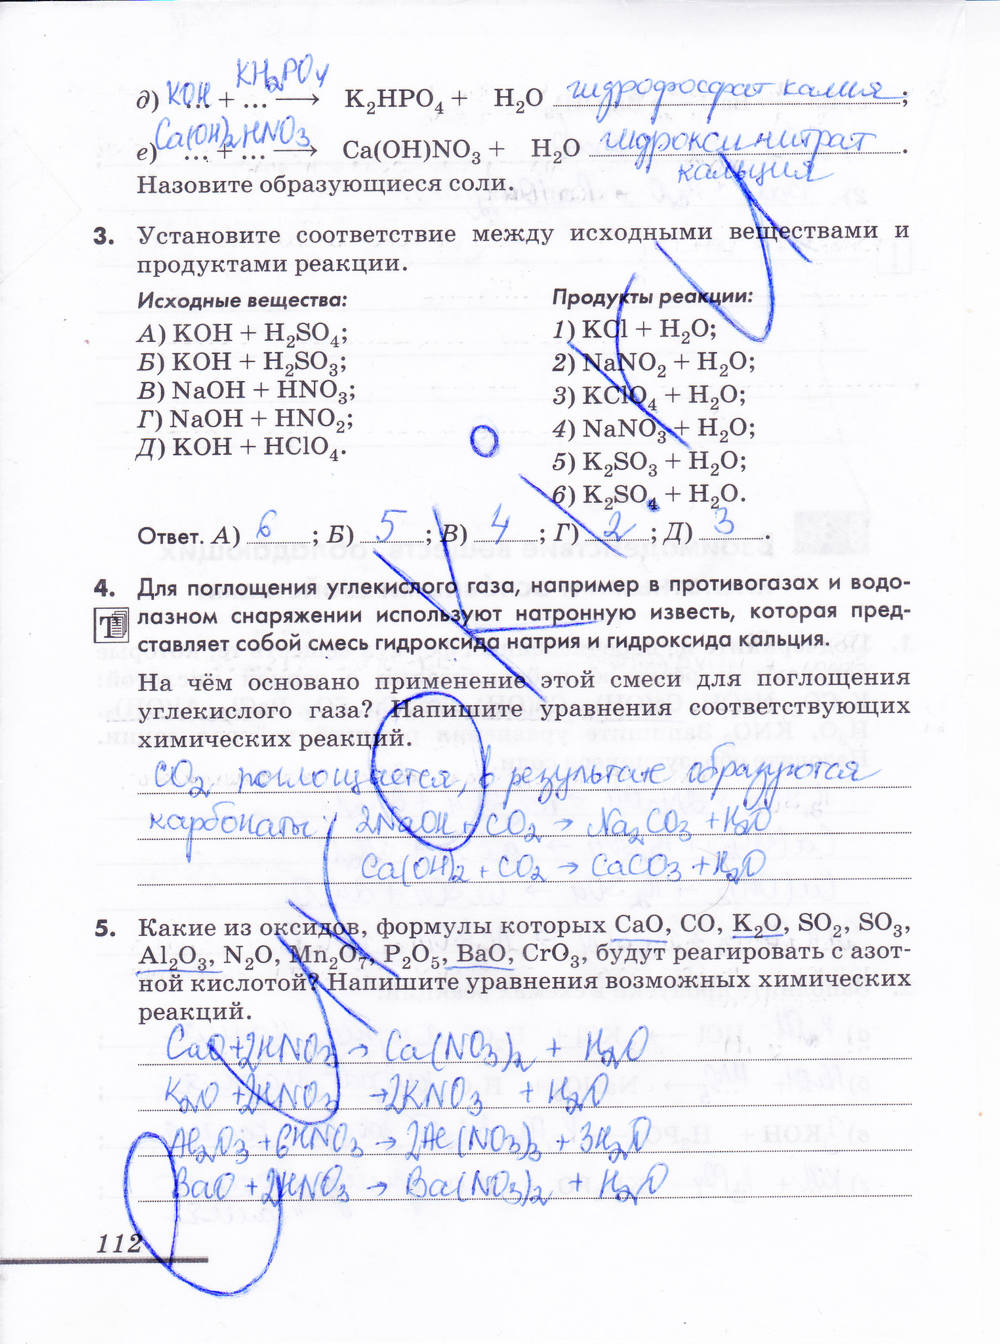 д) KOH + KH₂PO₄ ⟶ K₂HPO₄ + H₂O гидрофосфат калия;
е) Ca(OH)₂ + HNO₃ ⟶ Ca(OH)NO₃ + H₂O гидроксинитрат
кальция.
Назовите образующиеся соли.
3. Установите соответствие между исходными веществами и
продуктами реакции.
Исходные вещества:
А) KOH + H₂SO₄;
Б) KOH + H₂SO₃;
В) NaOH + HNO₃;
Г) NaOH + HNO₂;
Д) KOH + HClO₄.
Продукты реакции:
1) KCl + H₂O;
2) NaNO₂ + H₂O;
3) KClO₄ + H₂O;
4) NaNO₃ + H₂O;
5) K₂SO₃ + H₂O;
6) K₂SO₄ + H₂O.
Ответ. А) 6; Б) 5; В) 4; Г) 2; Д) 3.
4. Для поглощения углекислого газа, например в противогазах и водо-
лазном снаряжении используют натронную известь, которая пред-
ставляет собой смесь гидроксида натрия и гидроксида кальция.
На чём основано применение этой смеси для поглощения
углекислого газа? Напишите уравнения соответствующих
химических реакций.
CO₂ поглощается, в результате образуются
карбонаты: 2NaOH + CO₂ → Na₂CO₃ + H₂O
Ca(OH)₂ + CO₂ → CaCO₃ + H₂O
5. Какие из оксидов, формулы которых CaO, CO, K₂O, SO₂, SO₃,
Al₂O₃, N₂O, Mn₂O₇, P₂O₅, BaO, CrO₃, будут реагировать с азот-
ной кислотой? Напишите уравнения возможных химических
реакций.
CaO + 2HNO₃ → Ca(NO₃)₂ + H₂O
K₂O + 2HNO₃ → 2KNO₃ + H₂O
Al₂O₃ + 6HNO₃ → 2Al(NO₃)₃ + 3H₂O
BaO + 2HNO₃ → Ba(NO₃)₂ + H₂O
112